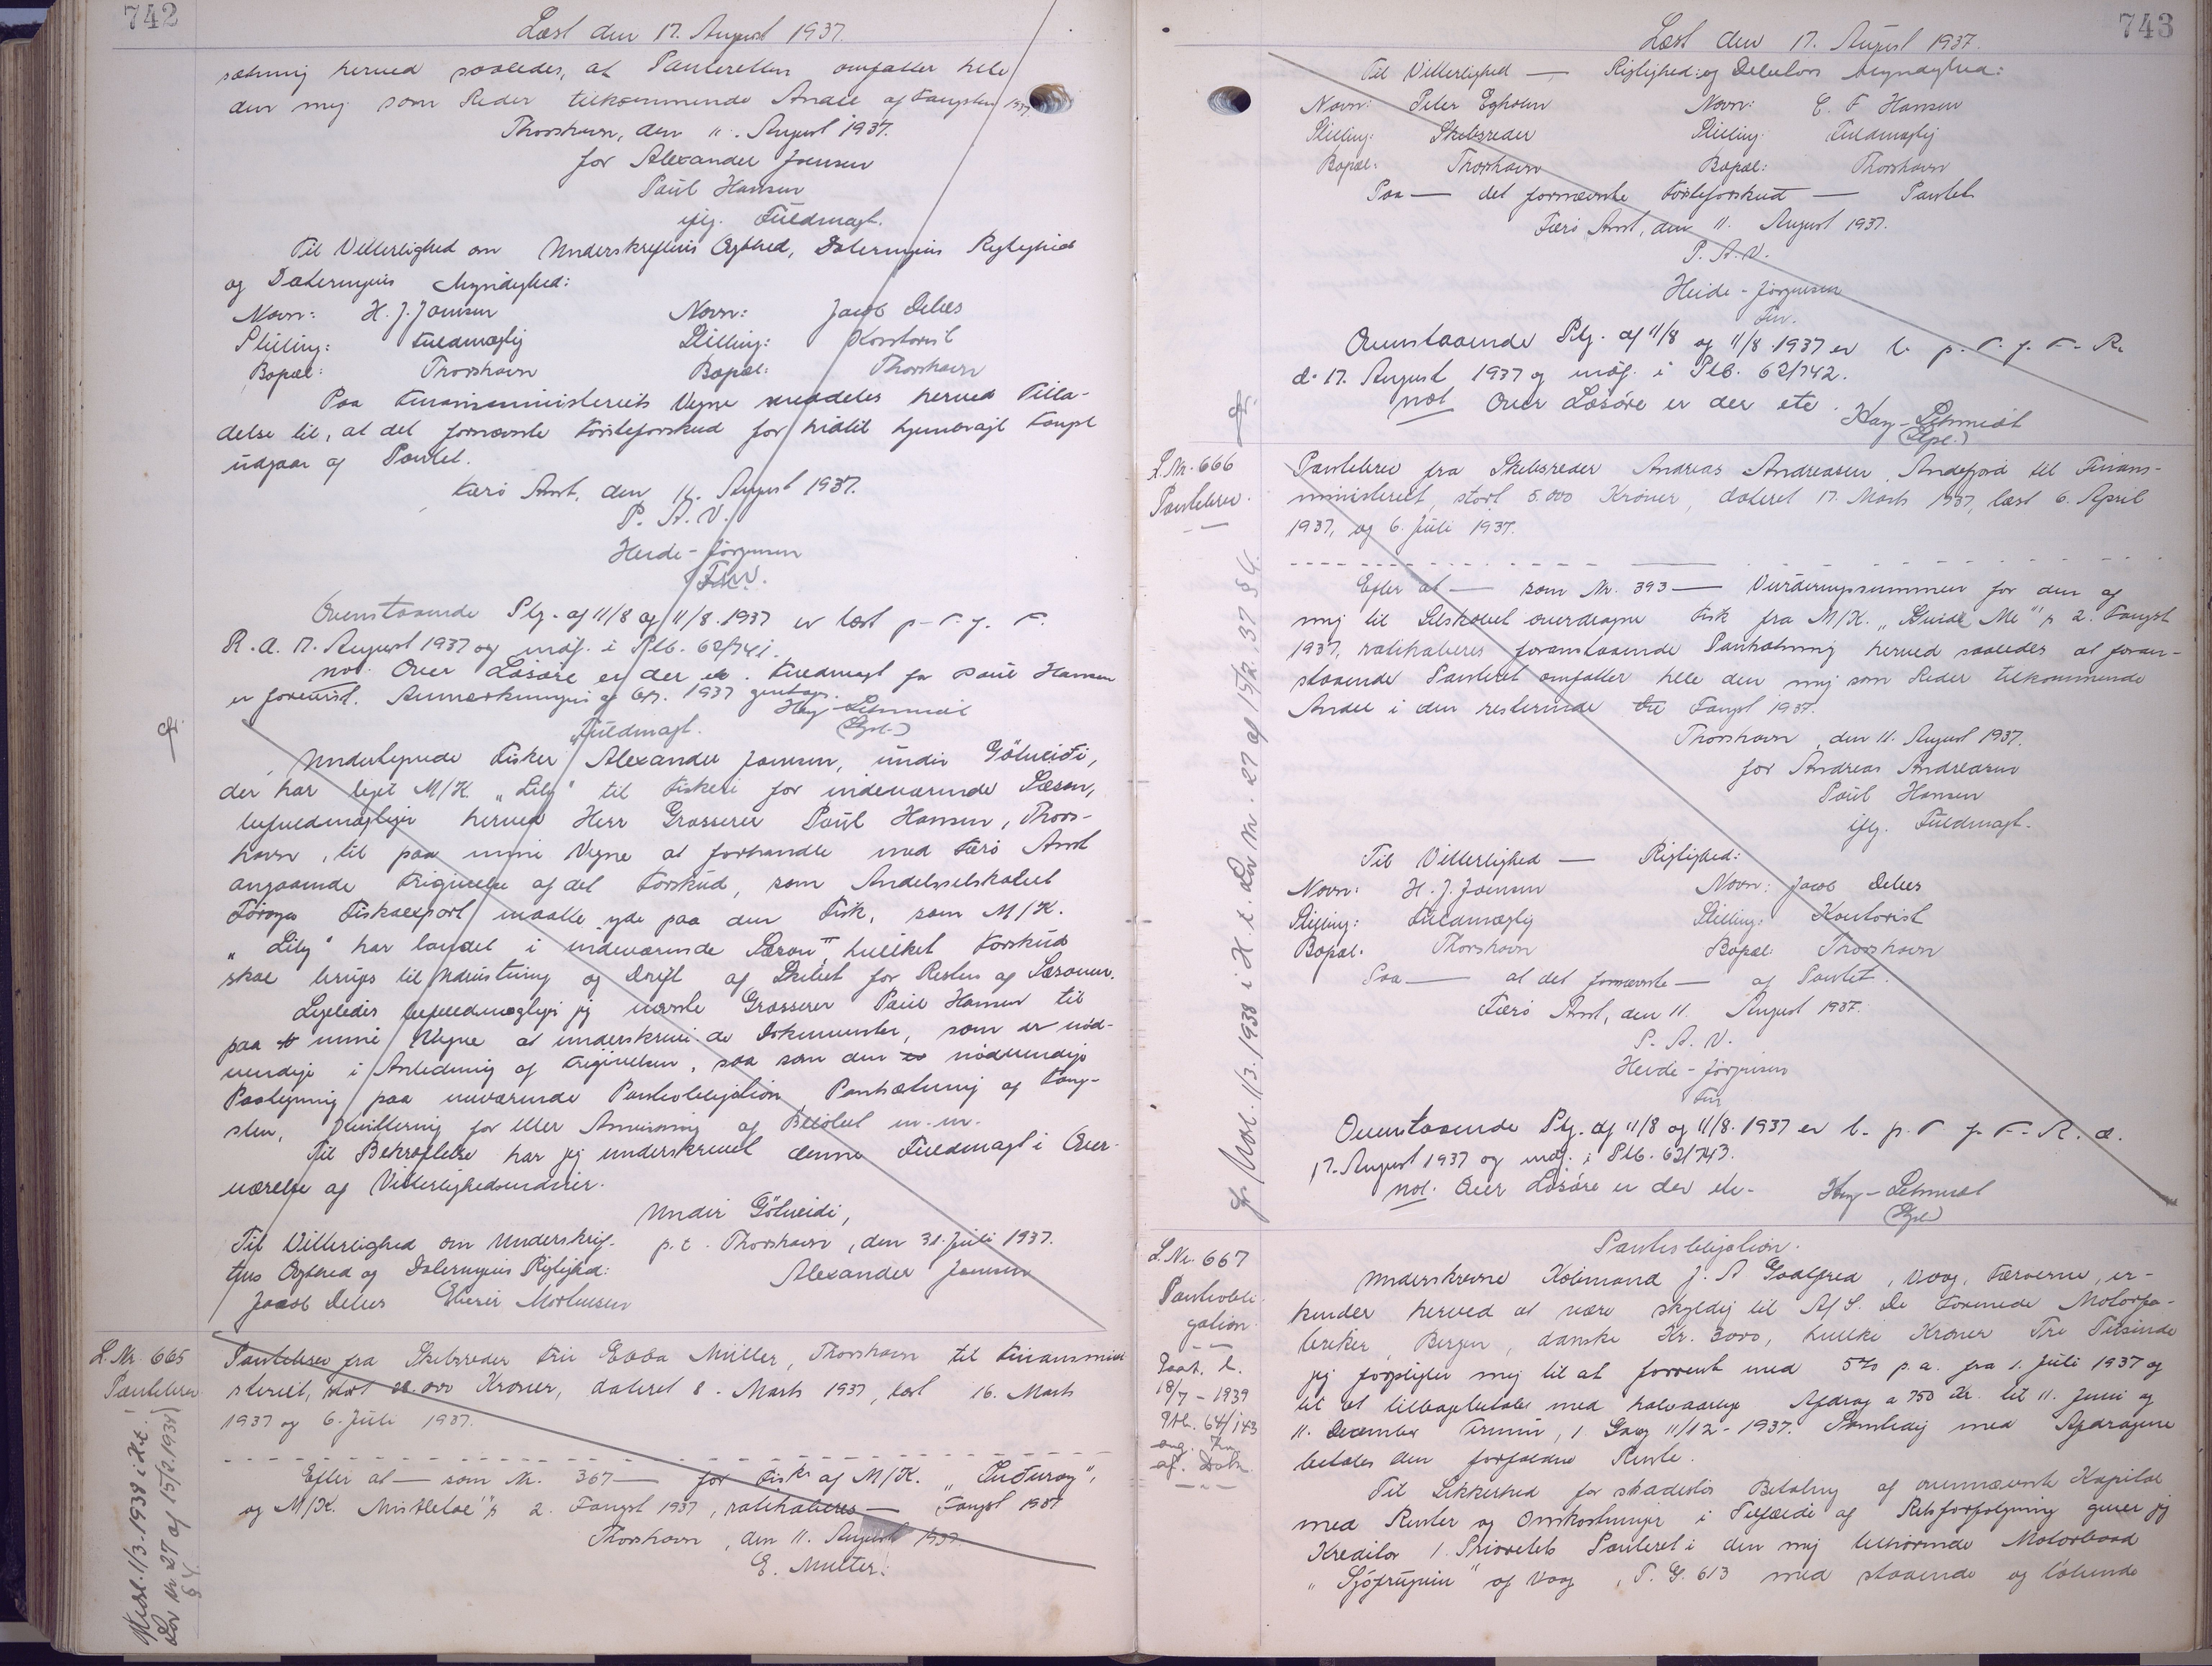 742
Læst den 17. August 1937.
sætning herved saaledes, at Panteretten omfatter hele
den mig som Reder tilkommende Andel af Fangsten 1937
Thorshavn, den 11. August 1937.
for Alexander Joensen
Paul Hansen
iflg. Fuldmagt.
Til Vitterlighed om Underskriftens Ægthed, Dateringens Rigtighed
og Dateringens Myndighed:
Navn: H. J. Joensen Navn: Jacob Debes
Stilling: Fuldmægtig Stilling: Kontorist
Bopæl: Thorshavn Bopæl: Thorshavn
Paa Finansministeriets Vegne meddeles herved Tilla-
delse til, at det fornævnte Forskud for hidtil hjembragt Fangst
udgaar af Pantet.
Færø Amt, den 11. August 1937.
P. A. V.
Heide-Jørgensen
Fm.
Ovenstaaende Ptg. af 11/8 og 11/8. 1937 er læst p. T. f. F.
R. d. 17. August 1937 og indf. i Plb. 62/741.
not. Over Løsøre er der etc. Fuldmagt for Paul Hansen
er forevist. Anmærkningen af 6/7. 1937 gentages.
Hey-Schmidt
(Gpl.)
Fuldmagt.
Undertegnede Fisker Alexander Joensen, undir Gøtueidi,
der har lejet M/K. "Lily" til Fiskeri for indeværende Sæson,
befuldmægtiger herved Herr Grosserer Paul Hansen, Thors-
havn, til paa mine Vegne at forhandle med Færø Amt
angaaende Frigivelse af det Forskud, som Andelsselskabet
Føroya Fiskaexport maatte yde paa den Fisk, som M/K.
"Lily" har landet i indeværende Sæson, hvilket Forskud
skal bruges til Udrustning og Drift af Skibet for Resten af Sæsonen.
Ligeledes befuldmægtiger jeg nævnte Grosserer Paul Hansen til
paa mine Vegne at underskrive de Dokumenter, som er nød-
vendige i Anledning af Frigivelsen, saa som den nødvendige
Paategning paa nuværende Pantobligation, Pantsætning af Fang-
sten, Kvittering for eller Anvisning af Beløbet m. m.
Til Bekræftelse har jeg underskrevet denne Fuldmagt i Over-
værelse af Vitterlighedsvidner.
Undir Gøtueidi,
Til Vitterlighed om Underskrif- p. t. Thorshavn, den 31. Juli 1937.
tens Ægthed og Dateringens Rigtighed: Alexander Joensen
Jacob Debes Mortensen
L. Nr. 665
Pantebrev
Pantebrev fra Skibsreder Fru Ebba Müller, Thorshavn til Finansmini
steriet, stort .000 Kroner, dateret 8. Marts 1937, læst 16. Marts
1937 og 6. Juli 1937.
Efter at — som Nr. 367 — for Fisk af M/K. "Suduroy",
og M/K. Mistletoe"'s 2. Fangst 1937, ratihaberes — Fangst 1937
Thorshavn, den 11. August 1937.
E. Müller.
1/3. 1938 i H. t.
Lov Nr 27 af 15/2. 1938
§ 4.
743
Læst den 17. August 1937.
Til Vitterlighed — Rigtighed: og Debitors Myndighed:
Navn: Peter Egholm Navn: C. F. Hansen
Stilling: Skibsreder Stilling: Fuldmægtig
Bopæl: Thorshavn Bopæl: Thorshavn
Paa — det fornævnte Forskud — Pantet.
Færø Amt, den 11. August 1937.
P. A. V.
Heide-Jørgensen
Fm.
Ovenstaaende Ptg. af 11/8 og 11/8. 1937 er l. p. T. f. F. R.
d. 17. August 1937 og indf. i Plb. 62/742.
not. Over Løsøre er der etc.
Hey-Schmidt
(Gpl.)
L. Nr. 666
Pantebrev.
Pantebrev fra Skibsreder Andreas Andreasen, Andefjord til Finans-
ministeriet, stort 5.000 Kroner, dateret 17. Marts 1937, læst 6. April
1937, og 6. Juli 1937.
Efter at — som Nr. 393 — Vurderingssummen for den af
mig til Selskabet overdragne Fisk fra M/K. "Guide Me"'s 2. Fangst
1937, ratihaberes foranstaaende Pantsætning herved saaledes at foran-
staaende Panteret omfatter hele den mig som Reder tilkommende
Andel i den resterende Fangst 1937.
Thorshavn, den 11. August 1937.
for Andreas Andreasen
Paul Hansen
iflg. Fuldmagt.
Til Vitterlighed — Rigtighed:
Navn: H. J. Joensen Navn: Jacob Debes
Stilling: Fuldmægtig Stilling: Kontorist
Bopæl: Thorshavn Bopæl: Thorshavn
Paa — at det fornævnte — af Pantet.
Færø Amt, den 11. August 1937.
P. A. V.
Heide-Jørgensen
Fm
Ovenstaaende Ptg. af 11/8 og 11/8. 1937 er l. p. T. f. F. R. d.
17. August 1937 og indf. i Plb. 62/743.
not. Over Løsøre er der etc. Hey-Schmidt
(Gpl.)
1/3. 1938 i H. t. Lov Nr. 27 af 15/2. 37 § 4.
L. Nr. 667
Pantobli-
gation
18/7 - 1939
Ptb. 64/143
Pantobligation.
Underskrevne Købmand J. A Godtfred, Vaag, Færøerne, er-
kender herved at være skyldig til A/S. De Forenede Motorfa-
briker, Bergen, danske Kr. 3000, hvilke Kroner Tre Tusinde
jeg forpligter mig til at forrente med 5% p. a. fra 1. Juli 1937 og
til at tilbagebetale med halvaarlige Afdrag a 750 Kr. til 11. Juni og
11. December Termin, 1 Gang 11/12 - 1937. Samtidig med Afdragene
betales den forfaldne Rente.
Til Sikkerhed for skadesløs Betaling af ovennævnte Kapital
med Renter og Omkostninger i Tilfælde af Retsforfølgning giver jeg
Kreditor 1. Prioritets Panteret i den mig tilhørende Motorbaad
" af Vaag, T. G. 613 med staaende og løbende